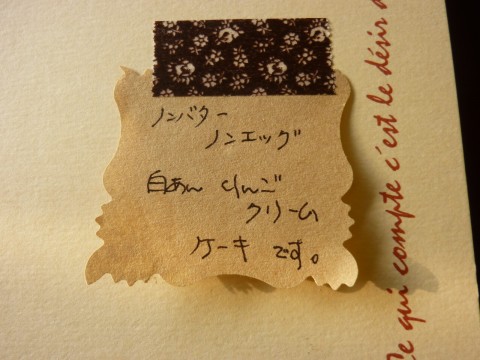 ノンバター
ノンエッグ
白あん りんご
クリーム
ケーキ です。
Ce qui compte c'est le désir d